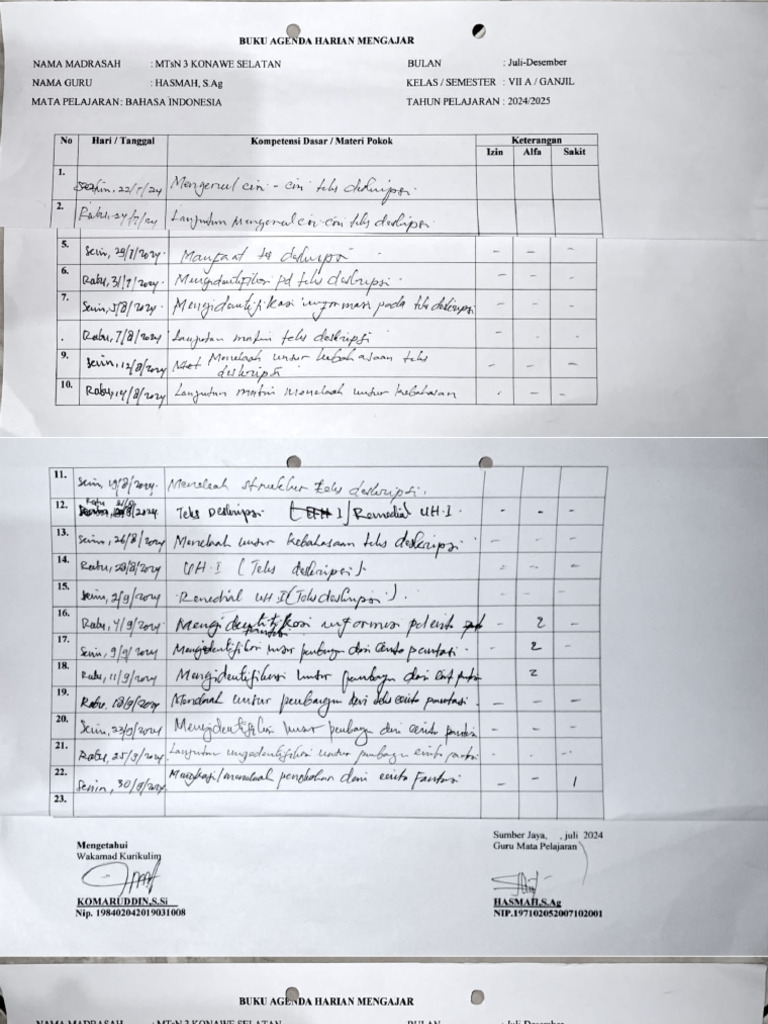 BUKU AGENDA HARIAN MENGAJAR
NAMA MADRASAH : MTsN 3 KONAWE SELATAN BULAN : Juli-Desember
NAMA GURU : HASMAH, S.Ag KELAS / SEMESTER : VII A / GANJIL
MATA PELAJARAN : BAHASA INDONESIA TAHUN PELAJARAN : 2024/2025
No Hari / Tanggal Kompetensi Dasar / Materi Pokok Keterangan
Izin Alfa Sakit
1. 22/7/24 Mengenal ciri - ciri teks deskripsi
2. Rabu, 24/7/24 Lanjutan Mengenal ciri-ciri teks deskripsi
5. Senin, 29/7/2024. Manfaat teks deskripsi - - -
6. Rabu, 31/7/2024 Mengidentifikasi pd teks deskripsi - - -
7. Senin, 5/8/2024. Mengidentifikasi informasi pada teks deskripsi - - -
. Rabu, 7/8/2024. Lanjutan materi teks deskripsi - - -
9. Senin, 12/8/2024 Menelaah unsur kebahasaan teks deskripsi - - -
10. Rabu, 14/8/2024 Lanjutan materi menelaah unsur kebahasaan - -
11. Senin, 19/8/2024. Menelaah struktur teks deskripsi.
12. Rabu 21/8/2024 Teks Deskripsi Remedial UH-I - - -
13. Senin, 26/8/2024 Menelaah unsur kebahasaan teks deskripsi - - -
14. Rabu, 28/8/2024 UH-I (Teks deskripsi). - - -
15. Senin, 2/9/2024. Remedial UH I (Teks deskripsi). - - -
16. Rabu, 4/9/2024. Mengidentifikasi informasi pd cerita fantasi - 2 -
17. Senin, 9/9/2024 Mengidentifikasi unsur pembangun dari cerita fantasi - 2 -
18. Rabu, 11/9/2024 Mengidentifikasi unsur pembangun dari cerita fantasi 2
19. Rabu, 18/9/2024. Menelaah unsur pembangun dari teks cerita fantasi. - - -
20. Senin, 23/9/2024 Mengidentifikasi unsur pembangun dari cerita fantasi - - -
21. Rabu, 25/9/2024. Lanjutan mengidentifikasi unsur pembangun cerita fantasi - - -
22. Senin, 30/9/2024. menelaah dari cerita Fantasi - - 1
23.
Sumber Jaya, , juli 2024
Mengetahui Guru Mata Pelajaran
Wakamad Kurikulim
KOMARUDDIN,S.Si HASMAH,S.Ag
Nip. 198402042019031008 NIP.197102052007102001
BUKU AGENDA HARIAN MENGAJAR
NAMA MADRASAH : MTsN 3 KONAWE SELATAN BULAN : Juli-Desember